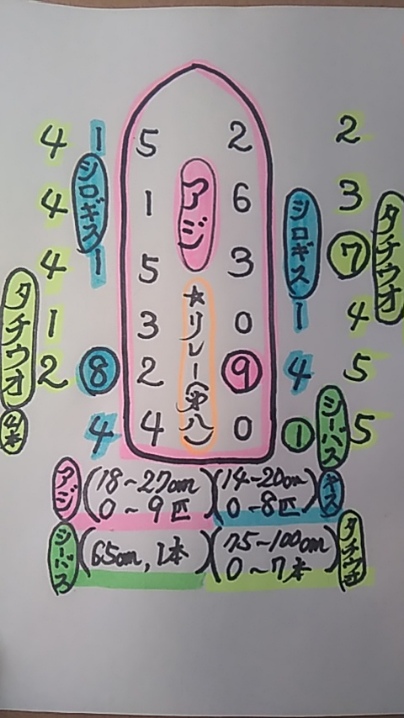 4 1 5 2 2
4 シロギス 1 アジ 6 シロギス 3 タチウオ
4 1 5 3 7
タチウオ 1 3 ☆リレー(第八) 0 1 4
2 8 2 9 4 5
4 4 0 1 シーバス 5
アジ (18~27cm) (14~20cm) キス
0~9匹 0~8匹
シーバス (65cm, 1本) (75~100cm) タチウオ
0~7本